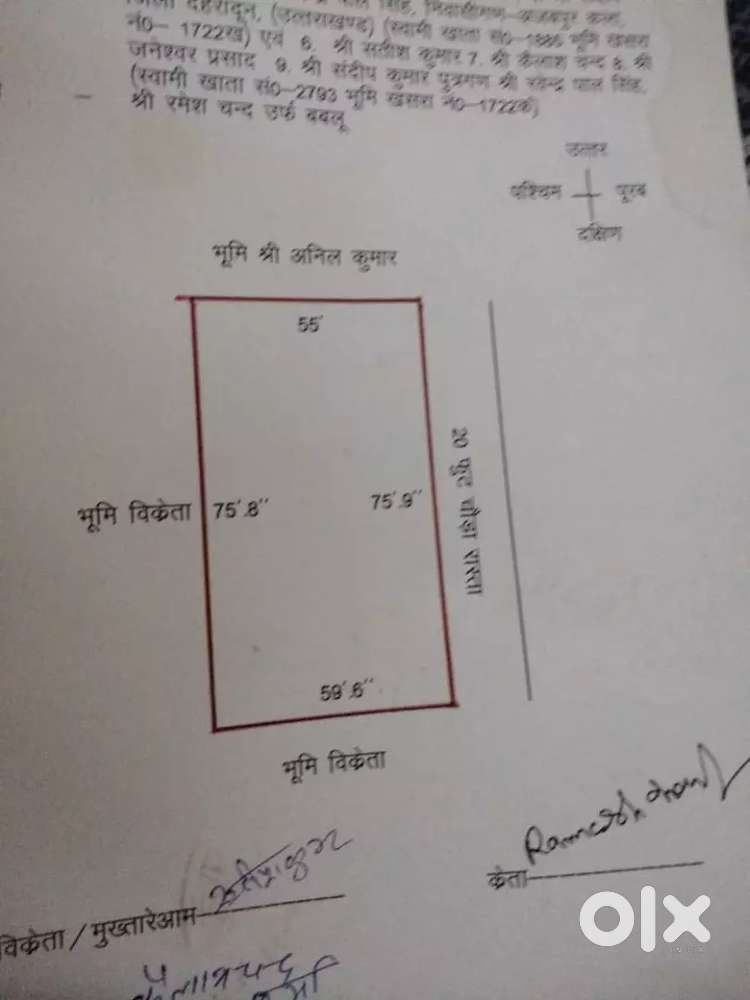 जिला देहरादून, (उत्तराखण्ड) (स्वामी खाता सं0-1886 भूमि खसरा
नं0- 1722ख) एवं 6. श्री सतीश कुमार 7. श्री कैलाश चन्द 8. श्री
जनेश्वर प्रसाद 9. श्री संदीप कुमार पुत्रगण श्री रवेन्द्र पाल सिंह,
(स्वामी खाता सं0-2793 भूमि खसरा नं0-1722क)
श्री रमेश चन्द उर्फ बबलू
उत्तर
पश्चिम पूरब
दक्षिण
भूमि श्री अनिल कुमार
55'
20 फुट चौड़ा रास्ता
भूमि विक्रेता 75'.8" 75'.9"
59'.6"
भूमि विक्रेता
Ramesh
क्रेता
विक्रेता / मुख्तारेआम
olx